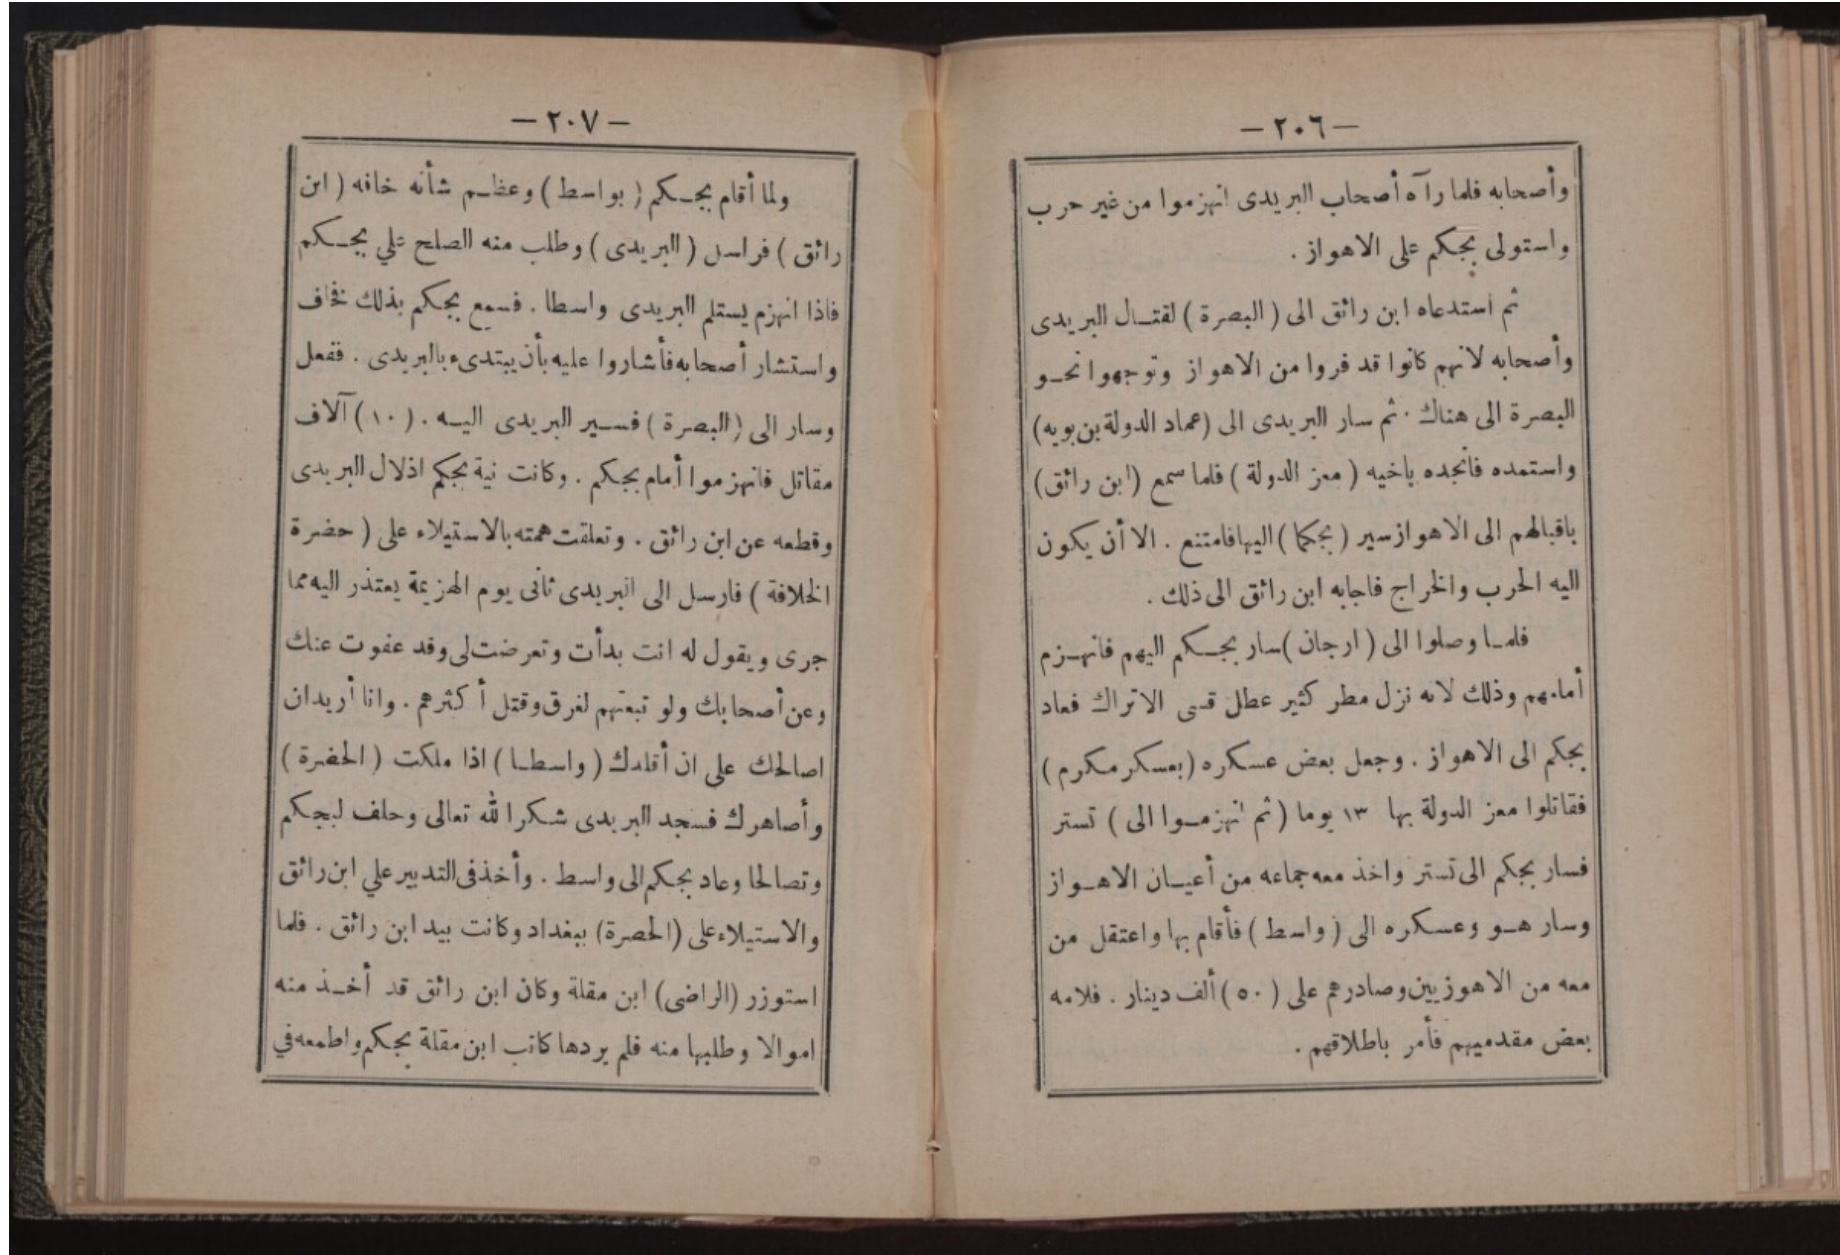 — ٢٠٦ —
وأصحابه فلما رآه أصحاب البريدى انهزموا من غير حرب
واستولى بجكم على الاهواز .
ثم استدعاه ابن رائق الى ( البصرة ) لقتـال البريدى
وأصحابه لانهم كانوا قد فروا من الاهواز وتوجهوا نحـو
البصرة الى هناك . ثم سار البريدى الى (عماد الدولة بن بويه)
واستمده فانجده باخيه ( معز الدولة ) فلما سمع (ابن رائق)
باقبالهم الى الاهواز سير ( بجكما ) اليها فامتنع . الا أن يكون
اليه الحرب والخراج فاجابه ابن رائق الى ذلك .
فلمـا وصلوا الى ( ارجان ) سار بجـكم اليهم فانهـزم
أمامهم وذلك لانه نزل مطر كثير عطل قسى الاتراك فعاد
بجكم الى الاهواز . وجعل بعض عسكره (بعسكر مكرم )
فقاتلوا معز الدولة بها ١٣ يوما ( ثم انهزمـوا الى ) تستر
فسار بجكم الى تستر واخذ معه جماعه من أعيـان الاهـواز
وسار هـو وعسكره الى ( واسط ) فأقام بها واعتقل من
معه من الاهوزيين وصادرهم على ( ٥٠ ) ألف دينار . فلامه
بعض مقدميهم فأمر باطلاقهم .
— ٢٠٧ —
ولما أقام بجـكم ( بواسط ) وعظـم شأنه خافه ( ابن
رائق ) فراسل ( البريدى ) وطلب منه الصلح علي بجـكم
فاذا انهزم يستلم البريدى واسطا . فسمع بجكم بذلك نخاف
واستشار أصحابه فأشاروا عليه بأن يبتدىء بالبريدى . ففعل
وسار الى ( البصرة ) فسـير البريدى اليـه . ( ١٠ ) آلاف
مقاتل فانهزموا أمام بجكم . وكانت نية بجكم اذلال البريدى
وقطعه عن ابن رائق . وتعلقت همته بالاستيلاء على ( حضرة
الخلافة ) فارسل الى البريدى ثانى يوم الهزيمة يعتذر اليه مما
جرى ويقول له انت بدأت وتعرضت لى وقد عفوت عنك
وعن أصحابك ولو تبعتهم لغرق وقتل أكثرهم . وانا أريدان
اصالحك على ان أقلدك ( واسطـا ) اذا ملكت ( الحضرة )
وأصاهرك فسجد البريدى شكرا لله تعالى وحلف لبجكم
وتصالحا وعاد بجكم الى واسط . وأخذ فى التدبير علي ابن رائق
والاستيلاء على (الحصرة) ببغداد وكانت بيد ابن رائق . فلما
استوزر (الراضى) ابن مقلة وكان ابن رائق قد أخـذ منه
اموالا وطلبها منه فلم يردها كاتب ابن مقلة بجكم واطمعه في